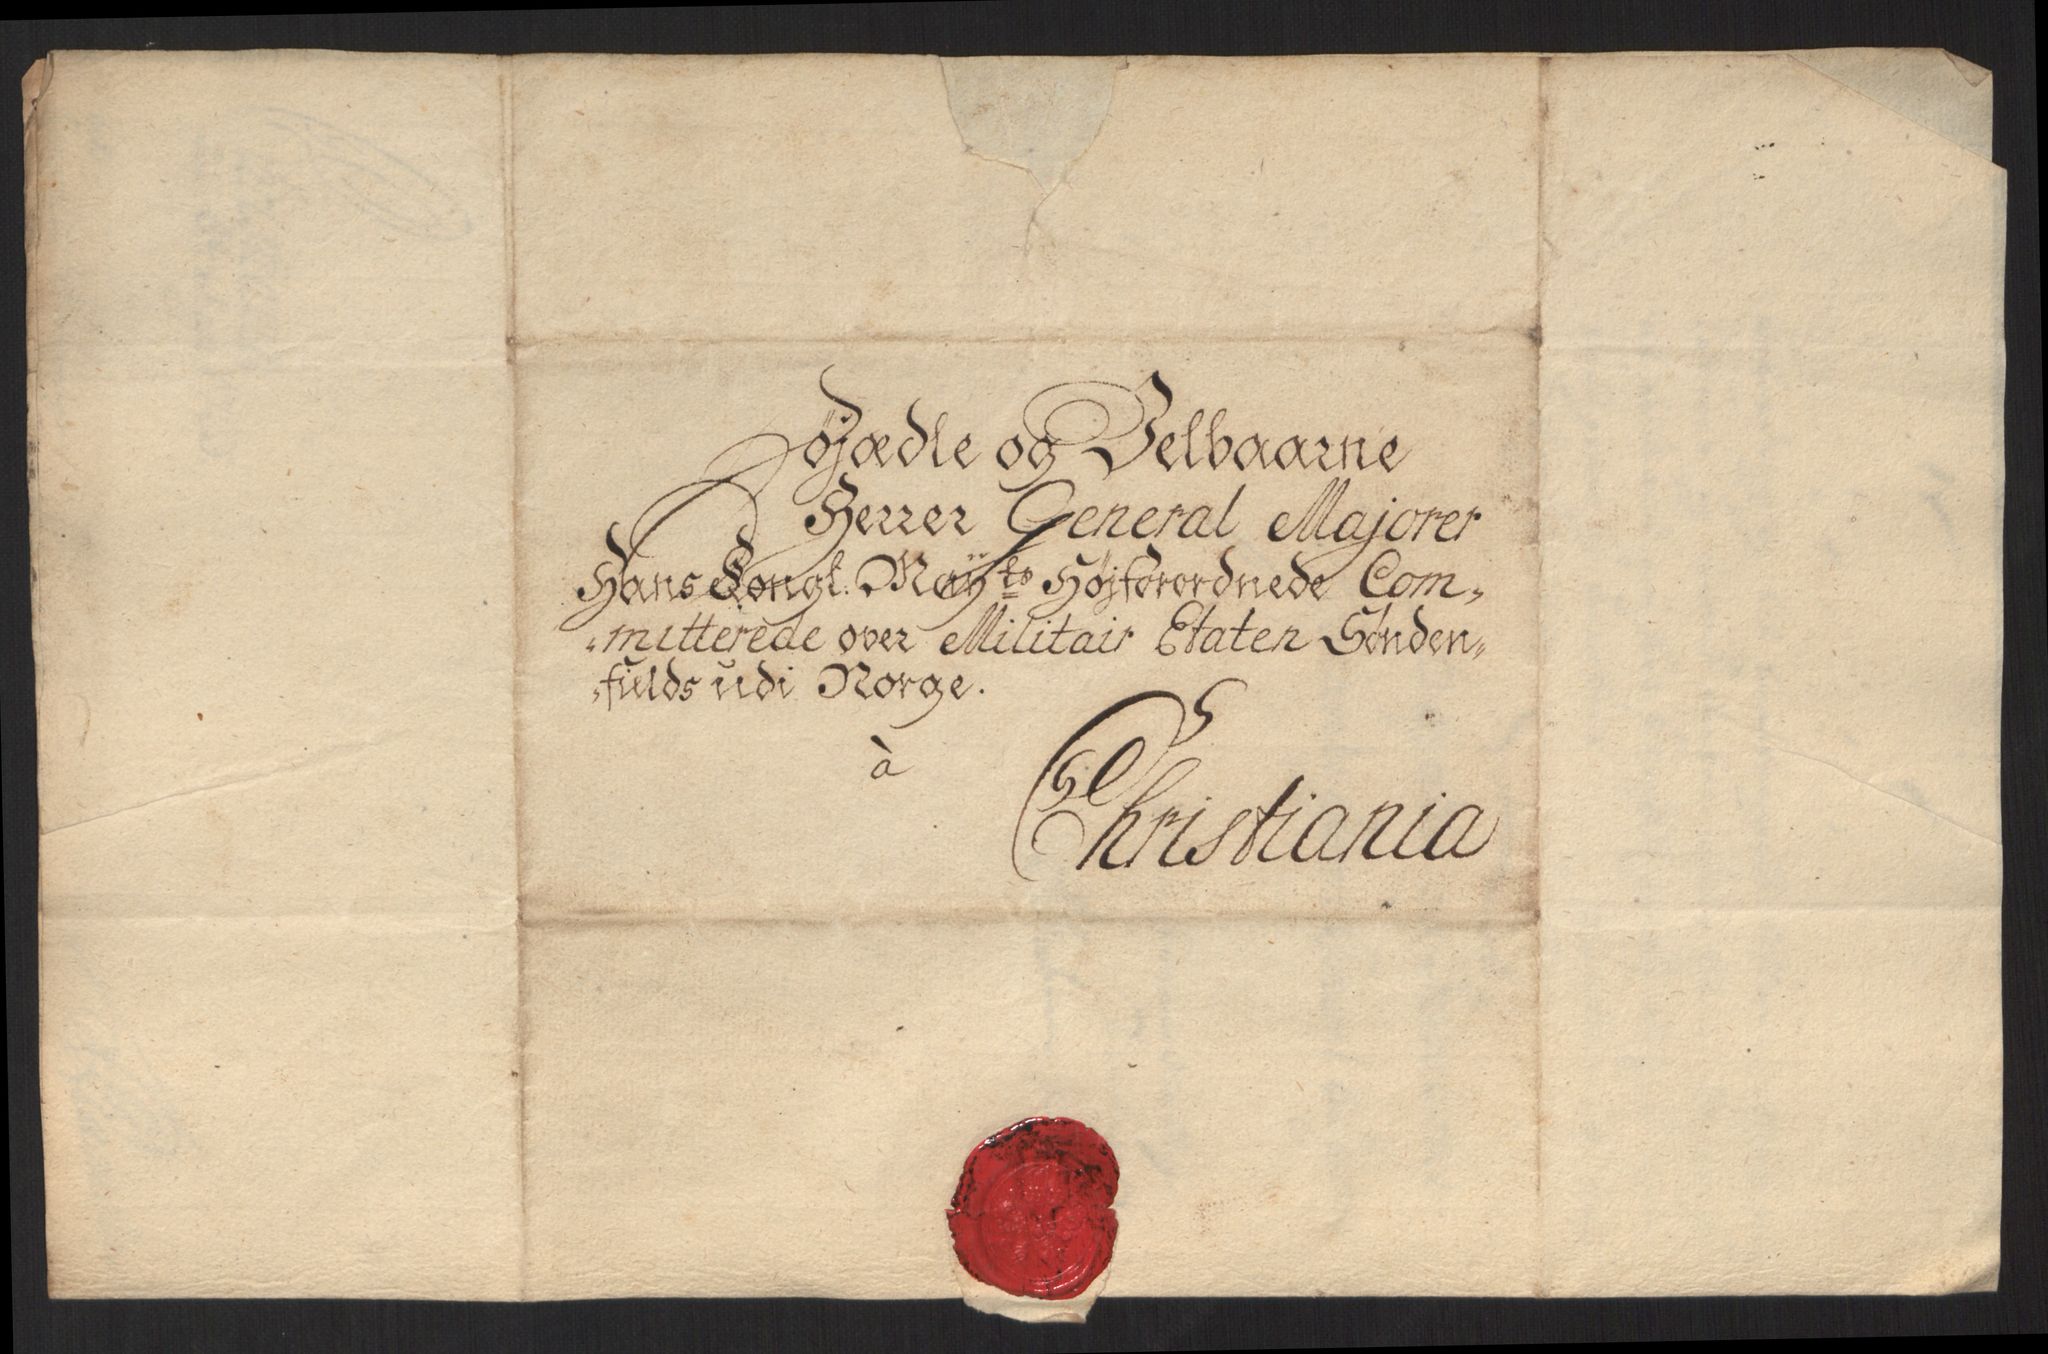 Højædle og Velbaarne
Herrer General Majorer
Hans Kongl. Maÿts Højforordnede Com„
„mitterede over Militair Etaten Sønden„
„fields udi Norge.
à
Christiania